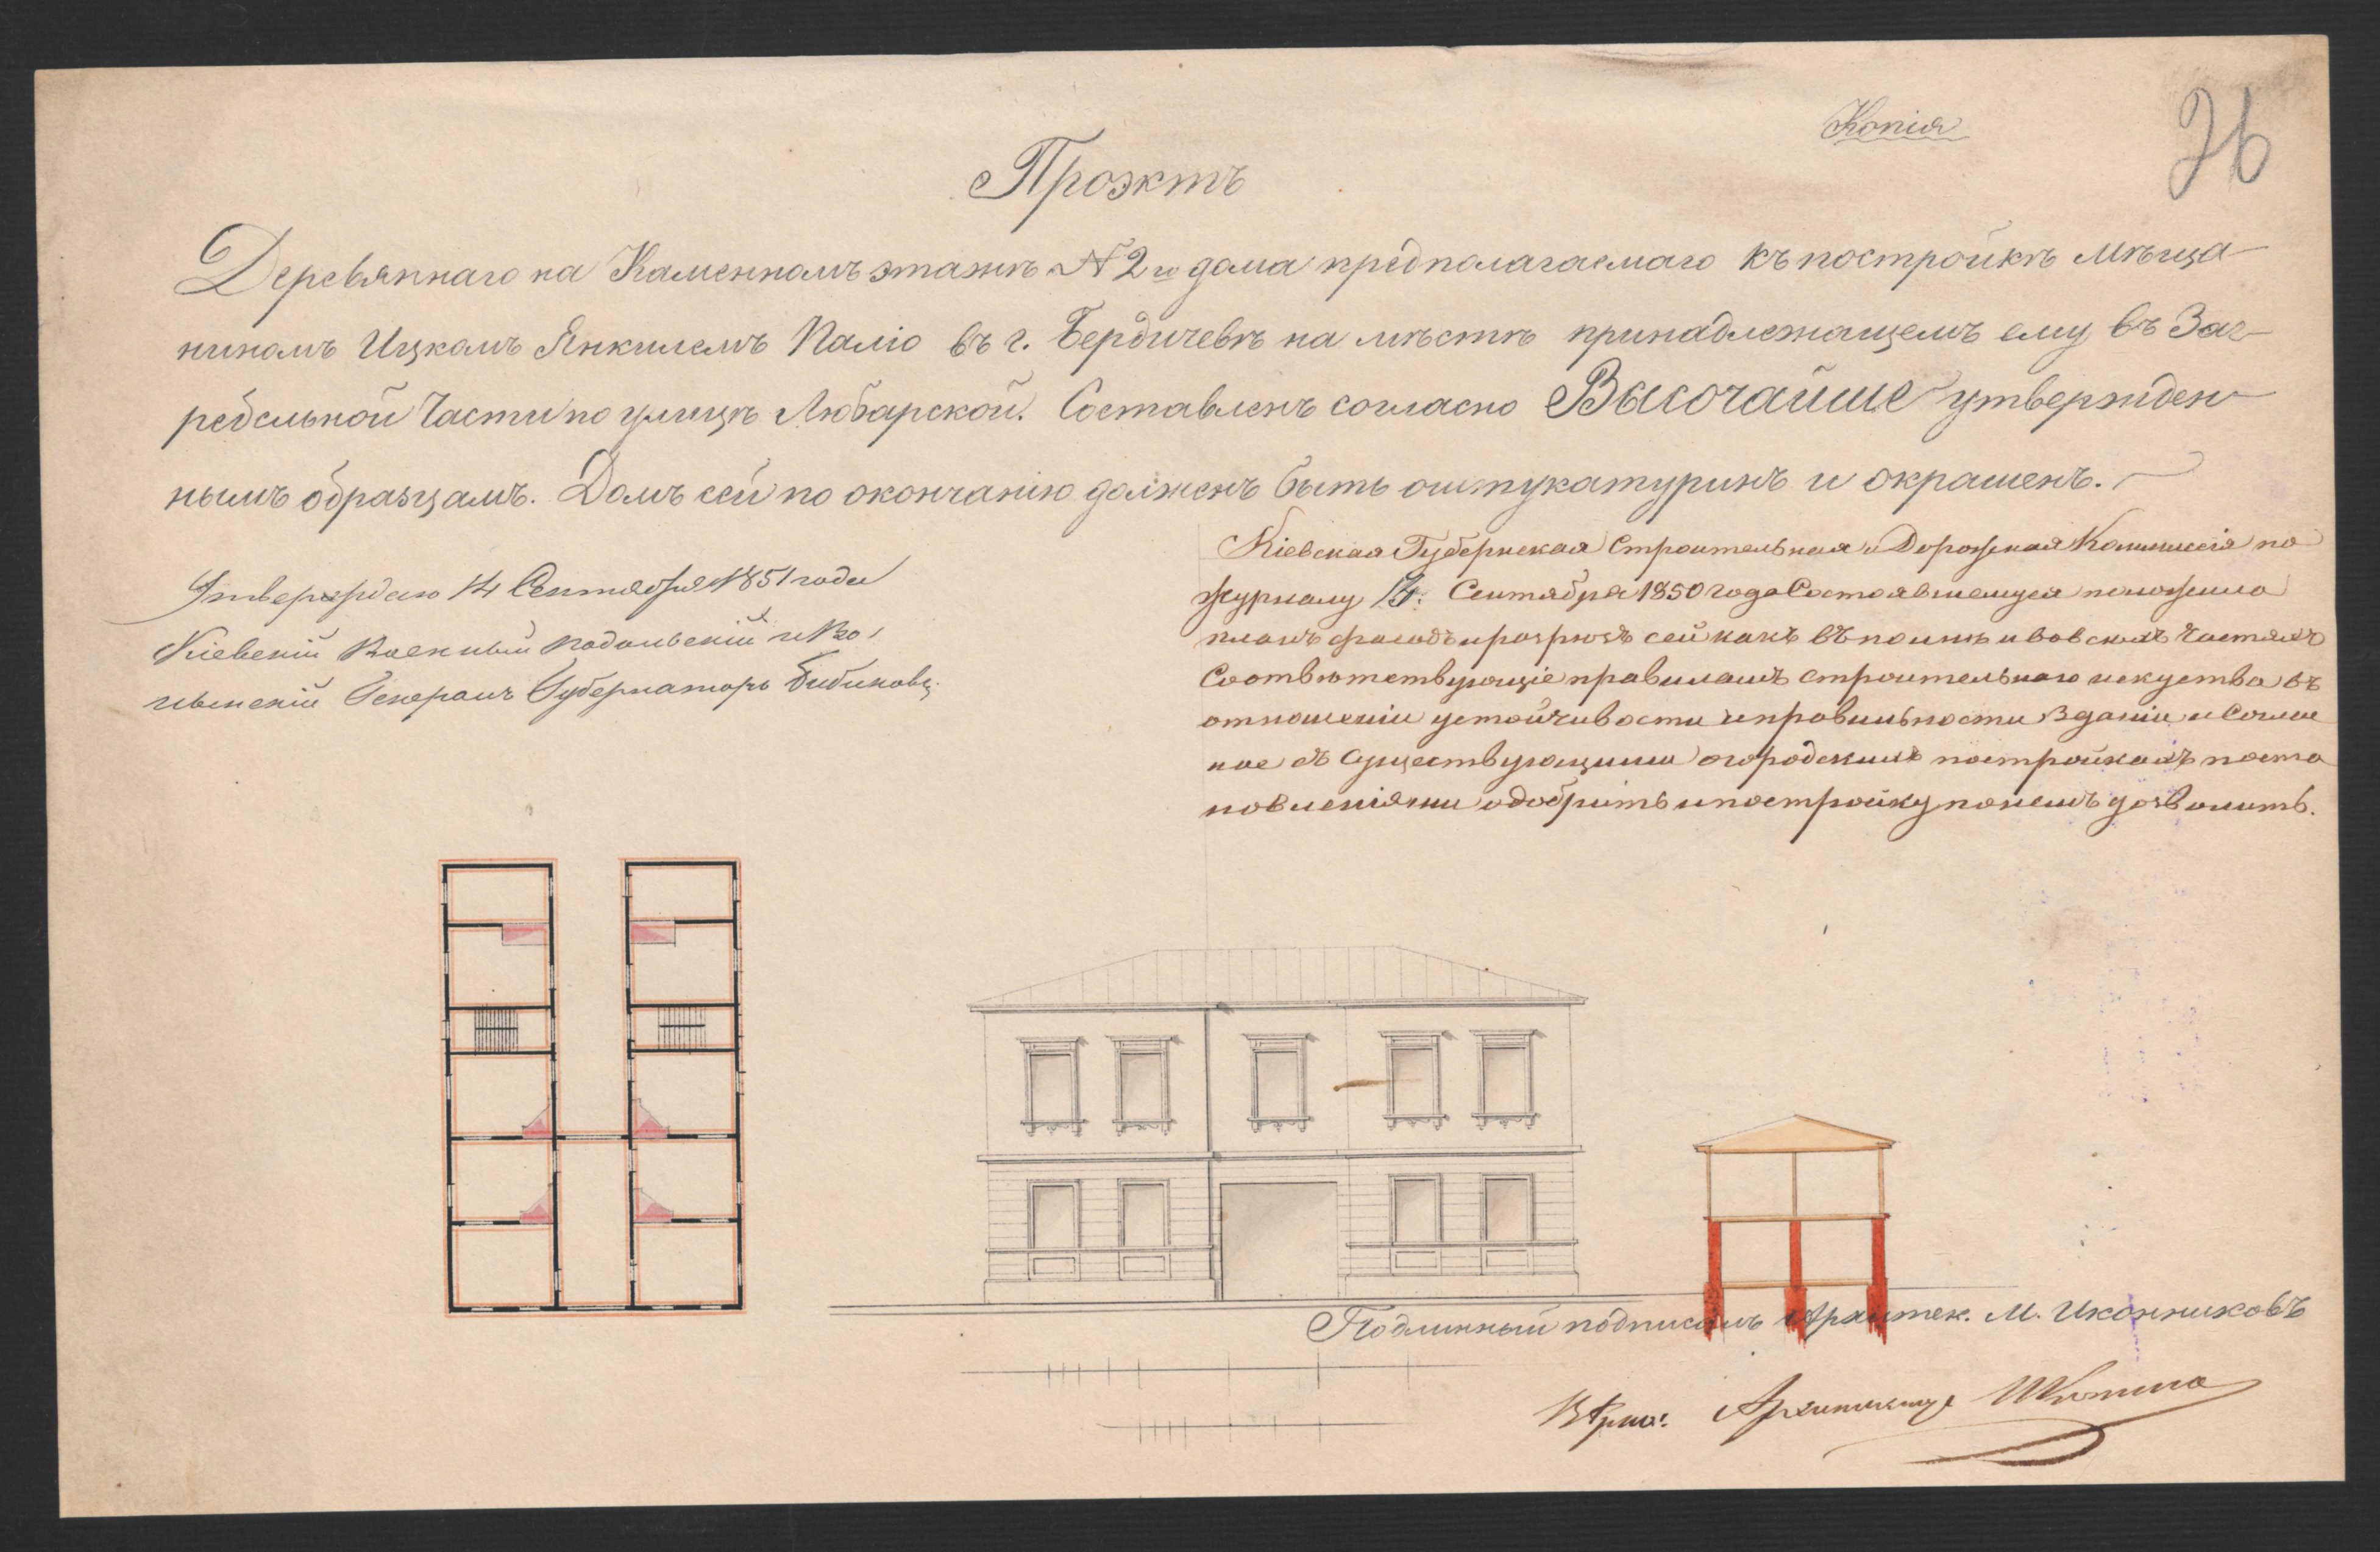 Копія
26
Проэктъ
Деревяннаго на Каменномъ этажѣ N 2го дома предполагаемаго къ постройкѣ мѣща-
ниномъ Ицкомъ Янкилемъ Паліо въ г. Бердичевѣ на мѣстѣ принадлежащемъ ему въ Заг-
ребельной Части по улицѣ Любарской. Составленъ согласно Высочайше утвержден-
нымъ образцамъ. Домъ сей по окончанію долженъ быть оштукатуринъ и окрашенъ.
Утверждаю 14 Сентября 1851 года
Кіевскій Военный Подольскій и Во-
лынскій Генералъ Губернаторъ Бибиковъ
Кіевская Губернская Строительная и Дорожная Коммисія по
журналу Сентября 1850 года Состоявшемуся положила
планъ фасадъ и розрѣзъ сей какъ въ полнѣ и во всѣхъ Частяхъ
Соотвѣтствующіе правиламъ строительнаго искуства въ
отношеніи устойчивости и правильности Зданіи и Соглас
ное съ Существующими о городскихъ постройкахъ поста
новленіями одобрить и постройку по немъ дозволить.
Подлинный подписалъ Архитек. М. Иконниковъ
Вѣрно: Архитекторъ